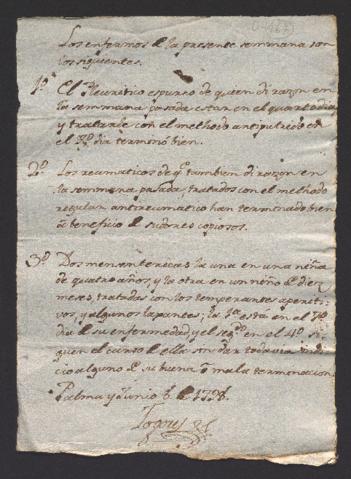 Los enfermos de la presente semmana son
los siguientes.
1º El Pleuretico espureo de quien di razon en
la semmana pasada estan en el quarto dia
y tratarle con el methodo antiputrido en
el 7º dia terminò bien.
2º Los reumaticos de qº tambien di razon en
la semmana pasada, tratados con el methodo
regular antireumatico han terminado bien
a beneficio de sudores copiosos.
3º Dos mensentericas la una en una niña
de quatro años, y la otra en un niño de diez
meses, tratadas con los temperantes aperiti-
vos, y algunos laxantes; la 1ª està en el 7º
dia de su enfermedad, y el segº en el 4º si-
guen el curso de ella sin dar todavia indi-
cio alguno de buena o mala terminacion.
Palma y Junio de 1798.